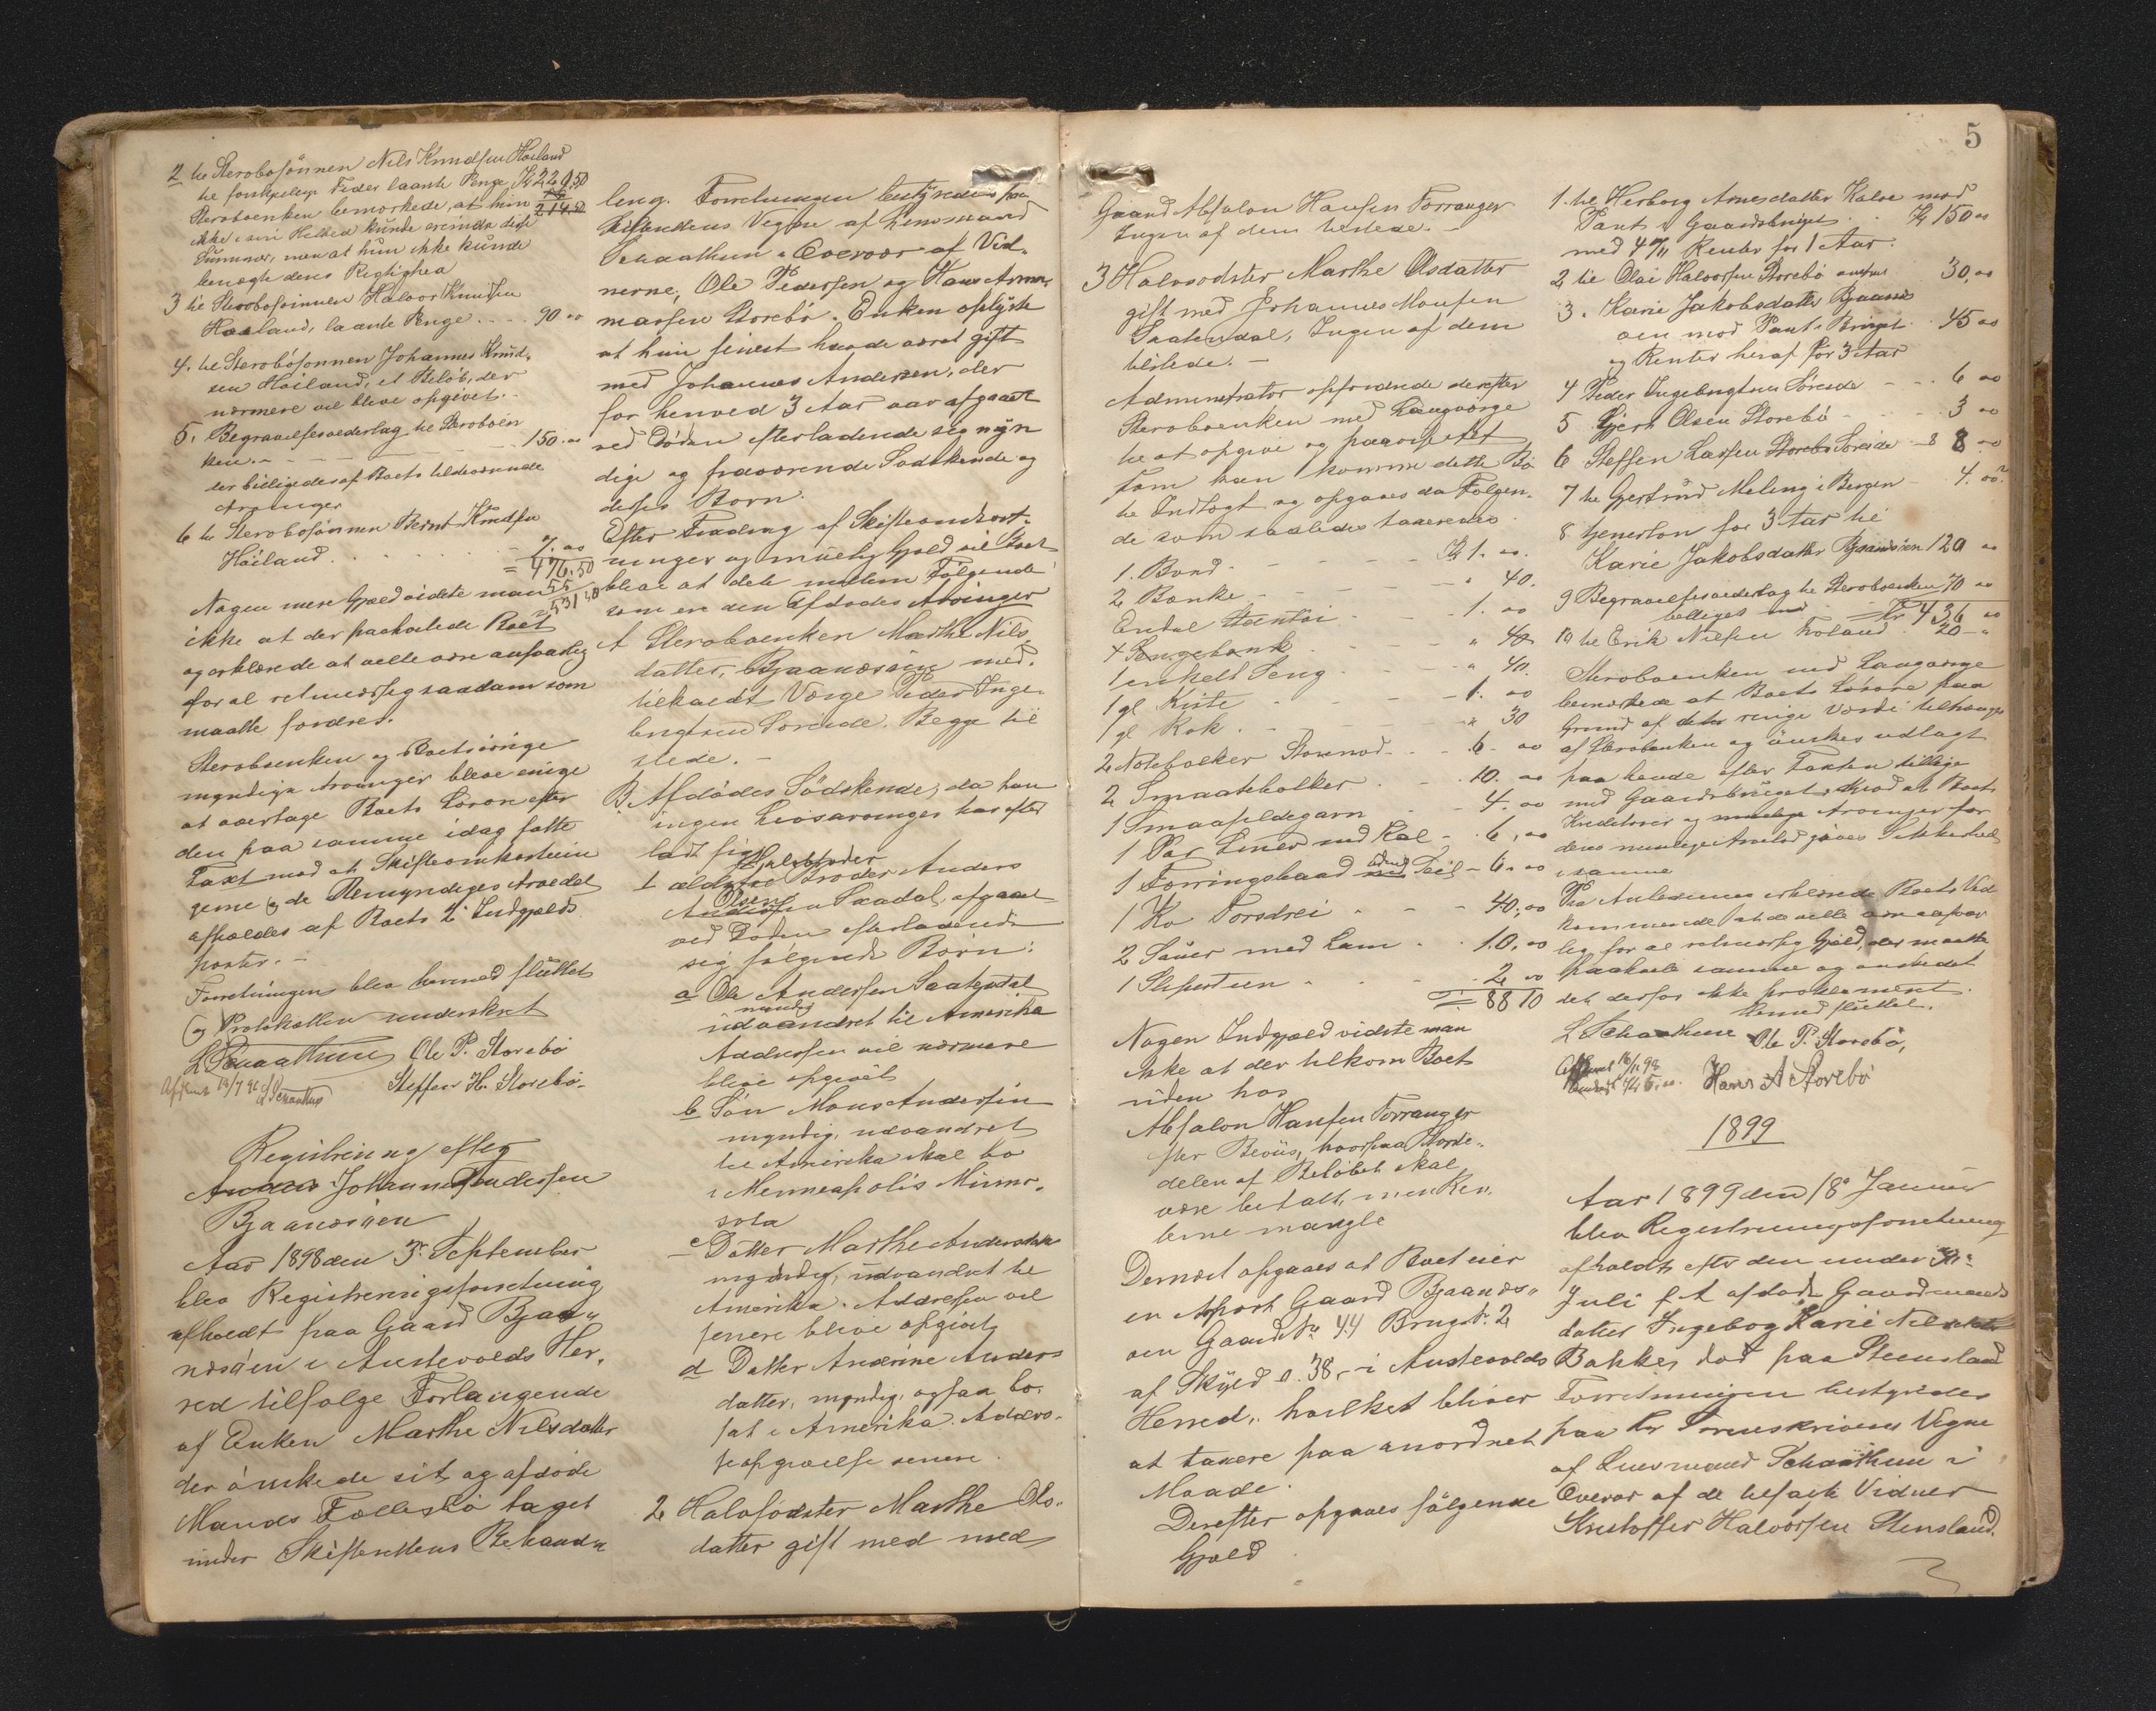 2 til Sterbosønnen Nils Knudsen Høiland
til forskjelige Tider laante Penge Kr 229.50
Sterboenken bemærkede, at hun 214.50
ikke i sin Helhed kunde erindre disse
Summer, men at hun ikke kunde
benægte deres Rigtighed
3 til Sterbosønnen Halvor Knudsen
Høiland, laante Penge . . . 90 00
4. til Sterbosønnen Johannes Knud-
sen Høiland, et Beløb, der
nærmere vil blive opgivet. -
5. Begravelsesvederlag til Sterboen
ken. - - - - - 150.00
der billigedes af Boets tilstedeværende
Arvinger
6 til Sterbosønnen Bernt Knudsen
Høiland . . . . . . 7.00
= 476.50
55
531 50
Nogen mere Gjæld vidste man
ikke at der paahvilede Boet
og erklærede at ville være ansvarlig
for al retmæssig saadan som
maatte fordres.
Sterboenken og Boets øvrige
myndige Arvinger bleve enige
at overtage Boets Løsøre efter
den paa samme idag satte
Taxt mod at Skifteomkostnin
gerne og de Umyndiges Arvedel
afholdes af Boets Indgjælds
poster. -
Forretningen blev hermed sluttet
og Protokollen underskret
L Schaathun Ole P. Storebø
Afsent 16/7 98 L Schaathun Steffen H. Storebø.
Registrering efter
Anders Johannes Andersen
Bjaanæsøen
Aar 1898 den 3. September
blev Registreringsforretning
afholdt paa Gaard Bjaa-
næsøen i Austevolds Her-
red tilfølge Forlangende
af Enken Marthe Nilsdatter
der ønskede sit og afdøde
Mands Fællesbo taget
under Skifterettens Behand-
ling. Forretningen bestyredes paa
Skifterettens Vegne af Lensmand
Schaathun i Overvær af Vid-
nerne, Ole Pedersen og Hans Asmu-
massen Storebø. Enken oplyste
at hun senest havde været gift
med Johannes Andersen, der
for henved 3 Aar var afgaaet
ved Døden efterladende sig myn
dige og fraværende Sødskende og
deses Børn.
Efter Fradrag af Skifteomkost-
ninger og muelig Gjæld vil Boet
blive at dele mellem Følgende
som ere den Afdødes Arvinger
A Sterboenken Marthe Nils-
datter, Bjaanæsøen med
tilkaldt Værge Peder Inge-
brigtsen Søreide. Begge til
stede. -
B. Afdødes Sødskende, da han
ingen Livsarvinger har efter
ladt sig
1 ældste Halvbroder Broder Anders
Olsen Andersen Saadal, afgaaet
ved Døden efterladende
sig følgende Børn:
a Ole Andersen Saatendal
myndig
udvandret til Amerika
Addressen vil nærmere
blive opgivet
b Søn Mons Andersen
myndig, udvandret
til Amerika skal bo
i Menneapolis Minne-
sota
c Datter Marthe Andersdatter
myndig, udvandret til
Amerika. Addressen vil
senere blive opgivet
d Datter Andrine Anders
datter, myndig, ogsaa bo-
sat i Amerika. Addres-
seopgivelse senere.
2 Halvsødster Marthe Ols-
datter gift med med
5
Gaard Absalon Hansen Torranger
Ingen af dem tilstede. -
3 Halvsødster Marthe Olsdatter
gift med Johannes Monsen
Saatendal, Ingen af dem
tilstede. -
Administrator opfordrede derefter
Sterboenken med Laugværge
til at opgive og paavise alt
som kan komme dette Bo
til Indtægt og opgaves da Følgen-
de som saaledes taxeredes.
1. Bord - - - - Kr 1. 00.
2 Bænke - - - " 40.
Endel Stentøi - - 1. 00
4 Sengebænk - - " 40
1 enkelt Seng - - " 40.
1 gl Kiste - - - 1. 00
1 gl Rok - - - " 30
2 Notebolker Stornod - - 6. 00
2 Smaatebolker . . 10. 00
1 Smaasildegarn - - 4. 00
1 Par Liner med Kal - . 6, 00
1 Færingsbaad uden Seil - 6. 00
1 Ko Forsdrei . - - 40, 00
2 Sauer med Lam . . 10, 00
1 Slipesteen . . . . 2 00
= 88 10
Nogen Indgjæld vidste man
ikke at der tilkom Boet
uden hos
Absalon Hansen Torranger
efter Beviis, hvorpaa Storde-
delen af Beløbet skal
være betalt, men Ren-
terne mangle
Dernæst opgaves at Boet eier
en Apart Gaard Bjaanæs-
øen Gaards No 44 Brugs No 2
af Skyld 0. 38 - i Austevolds
Herred, hvilket bliver
at taxere paa anordnet
Maade.
Derefter opgaves følgende
Gjæld
1. til Herborg Arnesdatter Kalve mod
Pant i Gaardsbruget . . Kr 150 00
med 4 % Renter for 1 Aar.
2 til Olai Halvorsen Storebø 30, 00
3. Karie Jakobsdatter Bjaanæs
øen mod Pant i Bruget . 45 00
og Renter heraf for 3 Aar
4 Peder Ingebrigtsen Søreide - - . 6 00
5 Gjert Olsen Storebø - - - . 3 00
6 Steffen Larsen Storebø Søreide - 8 8. 00
7 til Gjertrud Meling i Bergen - 4. 00.
8 Tjenerløn for 3 Aar til
Karie Jakobsdatter Bjaanæsøen 120 00
9 Begravelsesvederlag til Sterboenken 70 00
billiget Kr 436 00
10 til Erik Nilsen Troland . 20 "
Sterboenken med Laugværge
bemærkede at Boets Løsøre paa
Grund af dets ringe Værdi tilhænger
af Sterboenken og ønskes udlagt
paa hende efter Taxten tillige
med Gaardsbruget, mod at Boets
Kreditorer og muelige Arvinger for
deres muelige Arvelod gives Sikkerhed
i samme
Paa Anledning erklærede Boets Ved
kommende at de ville være ansvar
lig for al retmæssig Gjæld, der maatte
paahvile samme og ønskedet
det derfor ikke proklameret.
Hermed sluttet.
L Schaathun Ole P. Storebø,
Afsent 16/11 98
Hans A Storebø
1899
Aar 1899 den 18 Januar
blev Registreringsforretning
afholdt efter den under 31te
Juli f A afdøde Gaardmands
datter Ingebog Karie Nilsdatter
Bakke, død paa Steensland
Forretningen bestyredes
paa Hr Sorenskriverens Vegne
af Lensmand Schaathun i
Overvær af de tilsagte Vidner
Kristoffer Halvorsen Stensland